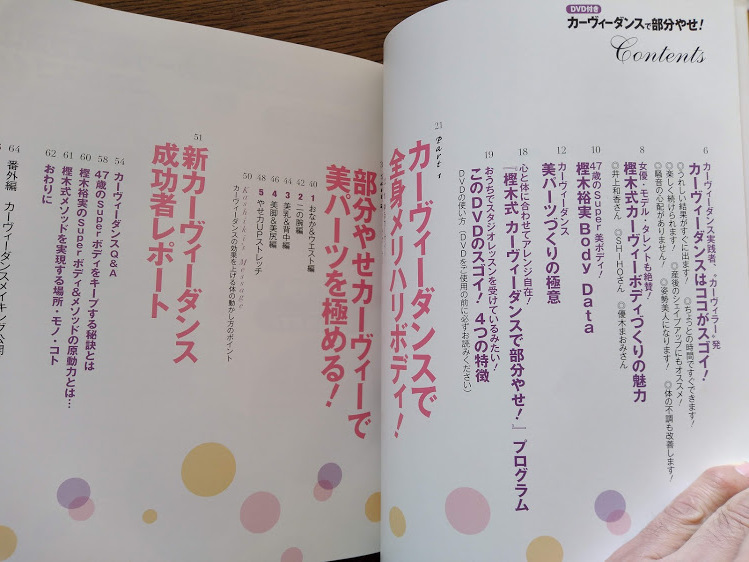 DVD付き
カーヴィーダンスで部分やせ!
Contents
6
カーヴィーダンス実践者、“カーヴィラー”発
カーヴィーダンスはココがスゴイ!
◎うれしい結果がすぐに出ます! ◎ちょっとの時間ですぐできます!
◎楽しく続けられます! ◎産後のシェイプアップにもオススメ! ◎体の不調も改善します!
◎騒音の心配がありません! ◎姿勢美人になります!
8
女優・モデル・タレントも絶賛!
樫木式カーヴィーボディづくりの魅力
◎井上和香さん ◎SHIHOさん ◎優木まおみさん
10
47歳のSuper美ボディ!
樫木裕実Body Data
12
カーヴィーダンス
美パーツづくりの極意
18
心と体に合わせてアレンジ自在!
『樫木式 カーヴィーダンスで部分やせ!』プログラム
19
おうちでスタジオレッスンを受けているみたい!
このDVDのスゴイ! 4つの特徴
DVDの使い方(DVDをご使用の前に必ずお読みください)
21
Part 1
カーヴィーダンスで
全身メリハリボディ!
部分やせカーヴィーで
美パーツを極める!
40 1 おなか&ウエスト編
42 2 二の腕編
44 3 美乳&背中編
46 4 美脚&美尻編
48 5 やせ力UPストレッチ
50 Kashiki's Message
カーヴィーダンスの効果を上げる体の動かし方のポイント
51
新カーヴィーダンス
成功者レポート
54 カーヴィーダンスQ&A
58 47歳のSuperボディをキープする秘訣とは
60 樫木裕実のSuperボディ&メソッドの原動力とは…
61 樫木式メソッドを実現する場所・モノ・コト
62 おわりに
64 番外編 カーヴィーダンスメイキング公開